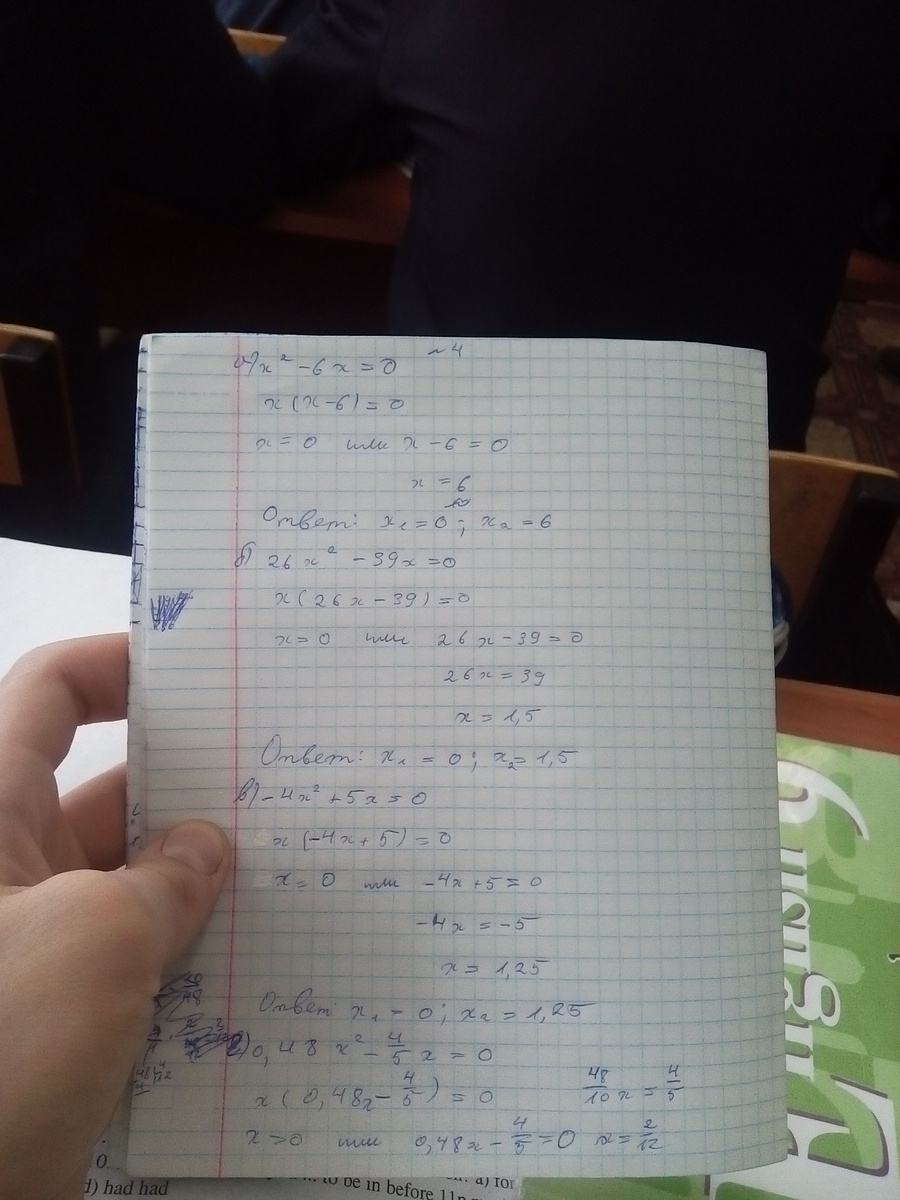 ~ 4
а) x² - 6x = 0
x(x-6) = 0
x = 0 или x - 6 = 0
x = 6
Ответ: x₁ = 0; x₂ = 6
б) 26x² - 39x = 0
x(26x - 39) = 0
x = 0 или 26x - 39 = 0
26x = 39
x = 1,5
Ответ: x₁ = 0; x₂ = 1,5
в) -4x² + 5x = 0
x(-4x + 5) = 0
x = 0 или -4x + 5 = 0
-4x = -5
x = 1,25
Ответ x₁ = 0; x₂ = 1,25
г) 0,48x² - 4/5 x = 0
x(0,48x - 4/5) = 0 48/10 x = 4/5
x = 0 или 0,48x - 4/5 = 0 x = 2/12
English
1
0.
d) had had
to be in before 11p
a) for